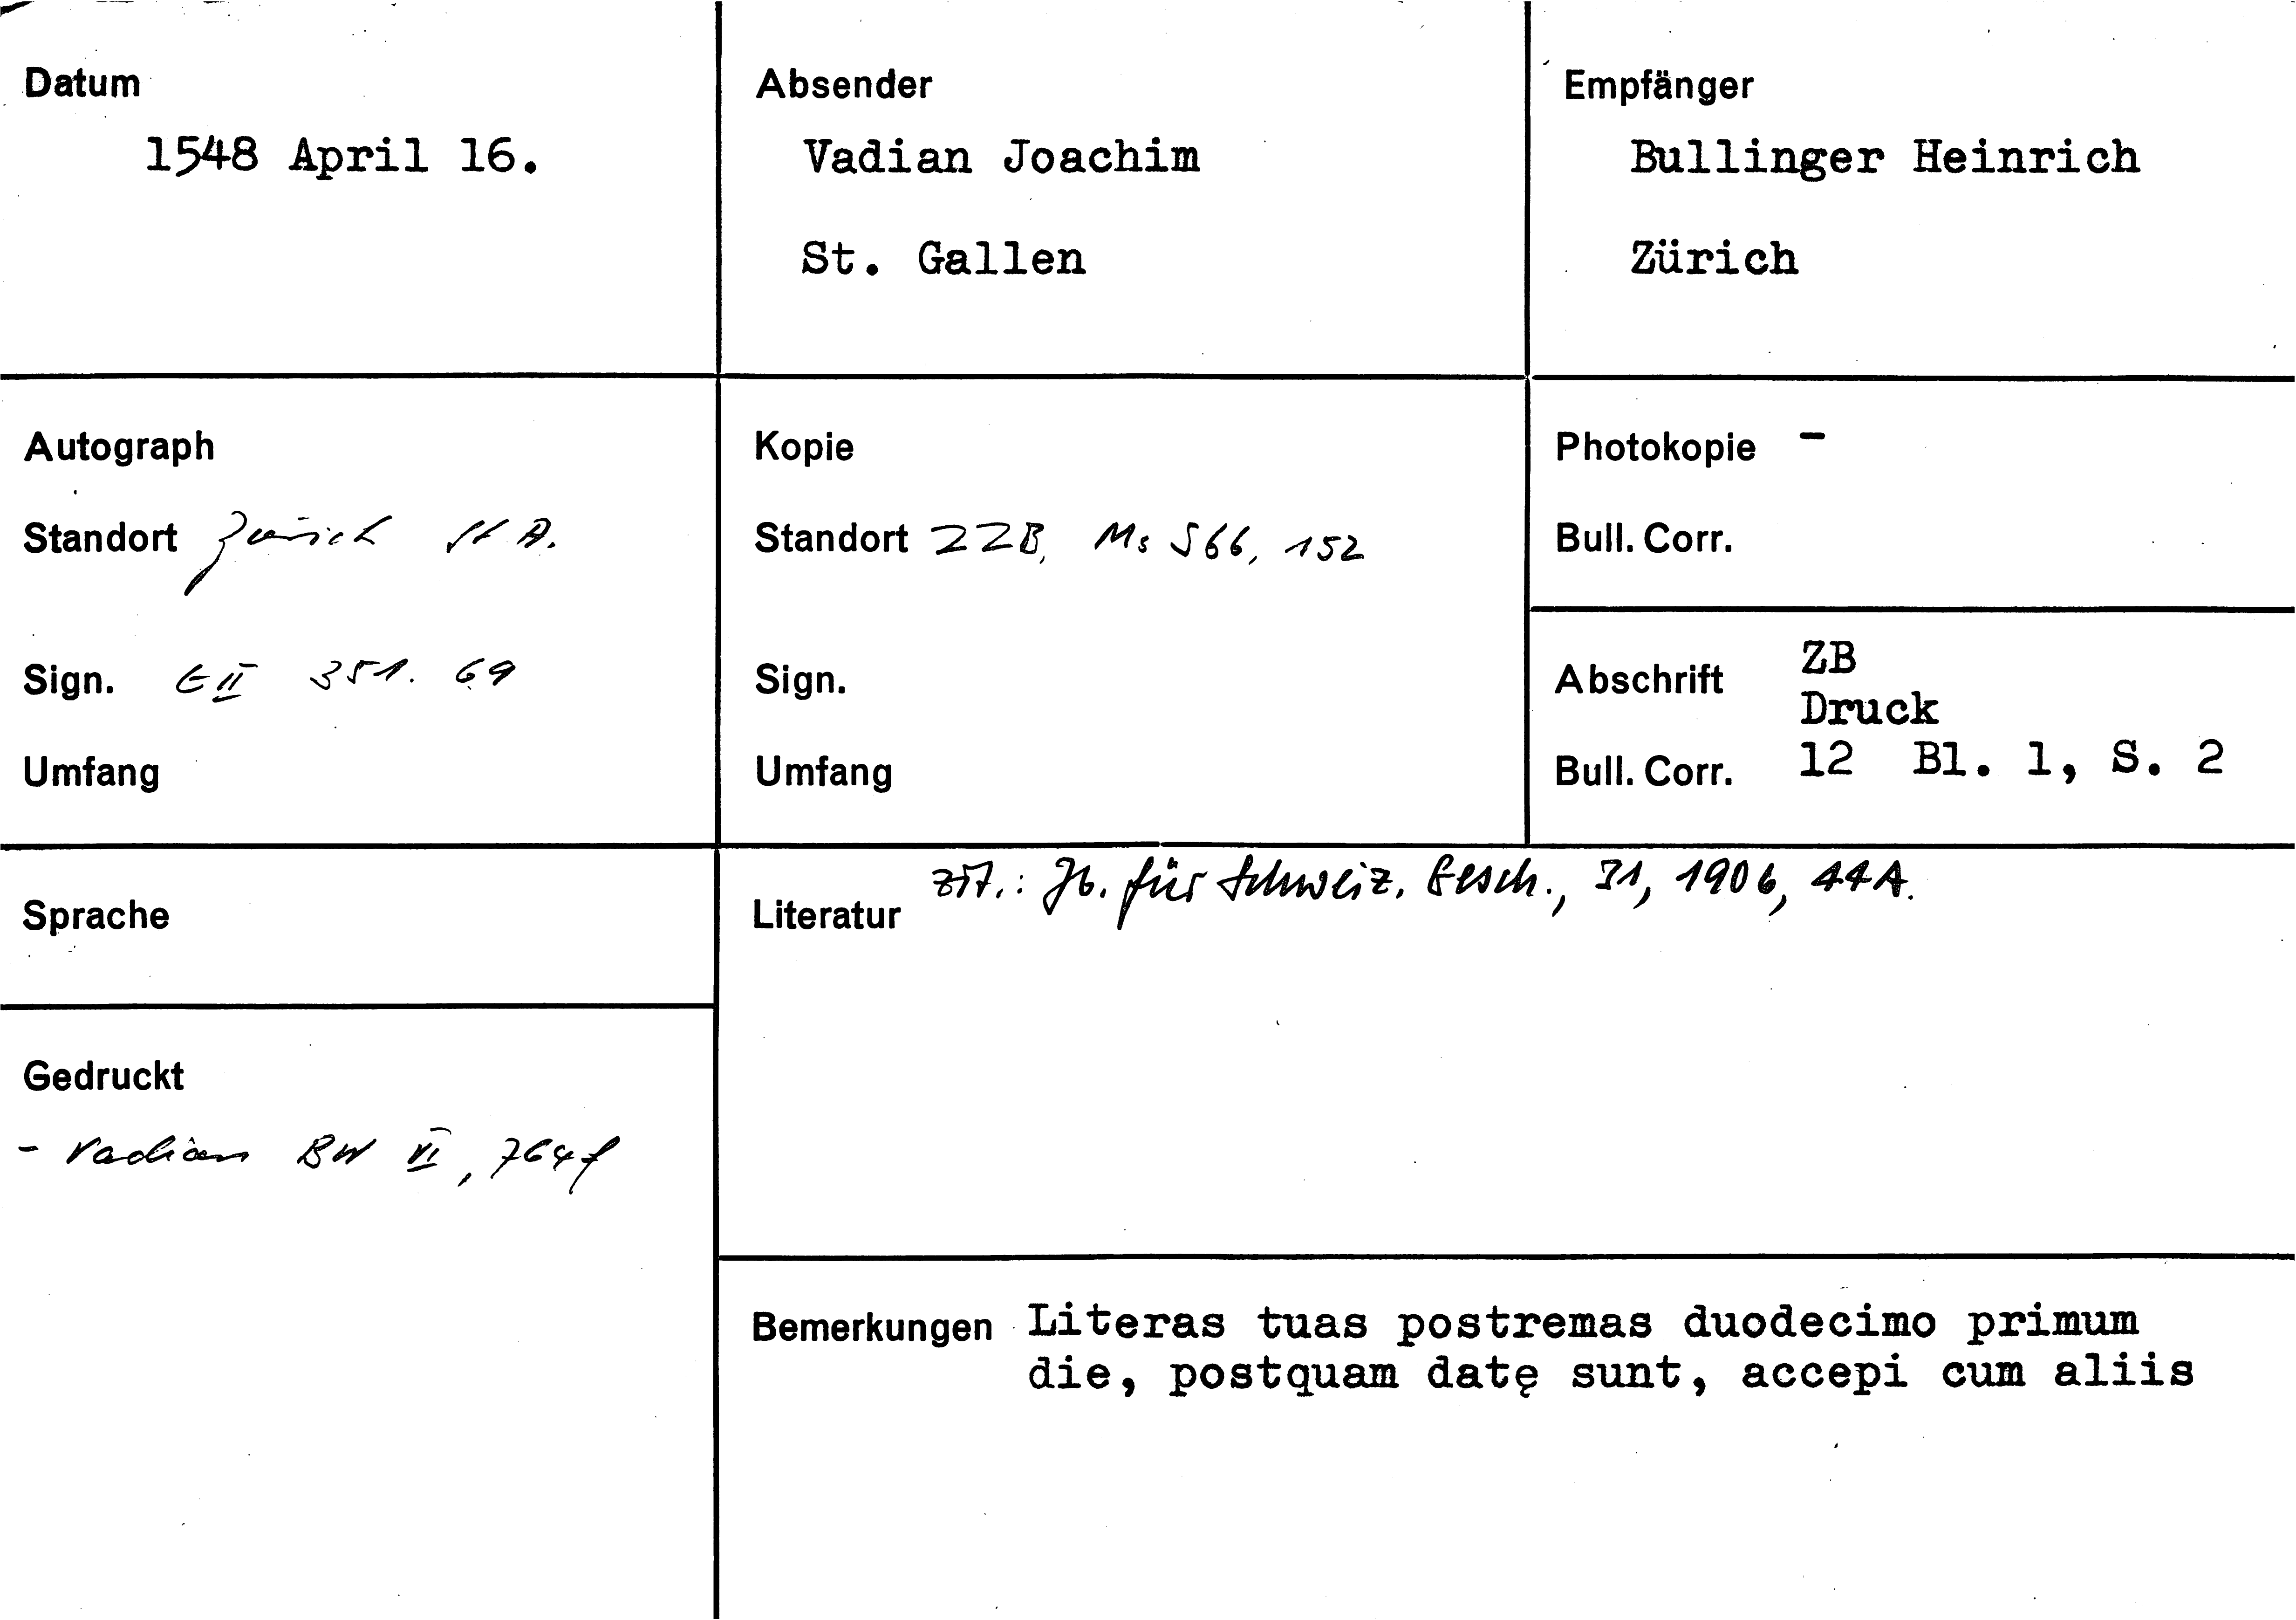 Datum
1548 April 16.
Absender
Vadian Joachim
St. Gallen
Empfänger
Bullinger Heinrich
Zürich
Autograph
Standort Zürich StA.
Sign. E II 351. 69
Umfang
Kopie
Standort ZZB, Ms S 66, 152
Sign.
Umfang
Photokopie -
Bull. Corr.
Abschrift ZB
Druck
Bull. Corr. 12 Bl. 1, S. 2
Sprache
Gedruckt
- Vadian BW VI, 764f
Literatur zit.: Jb. für Schweiz. Gesch., 31, 1906, 44A.
Bemerkungen Literas tuas postremas duodecimo primum
die, postquam datę sunt, accepi cum aliis